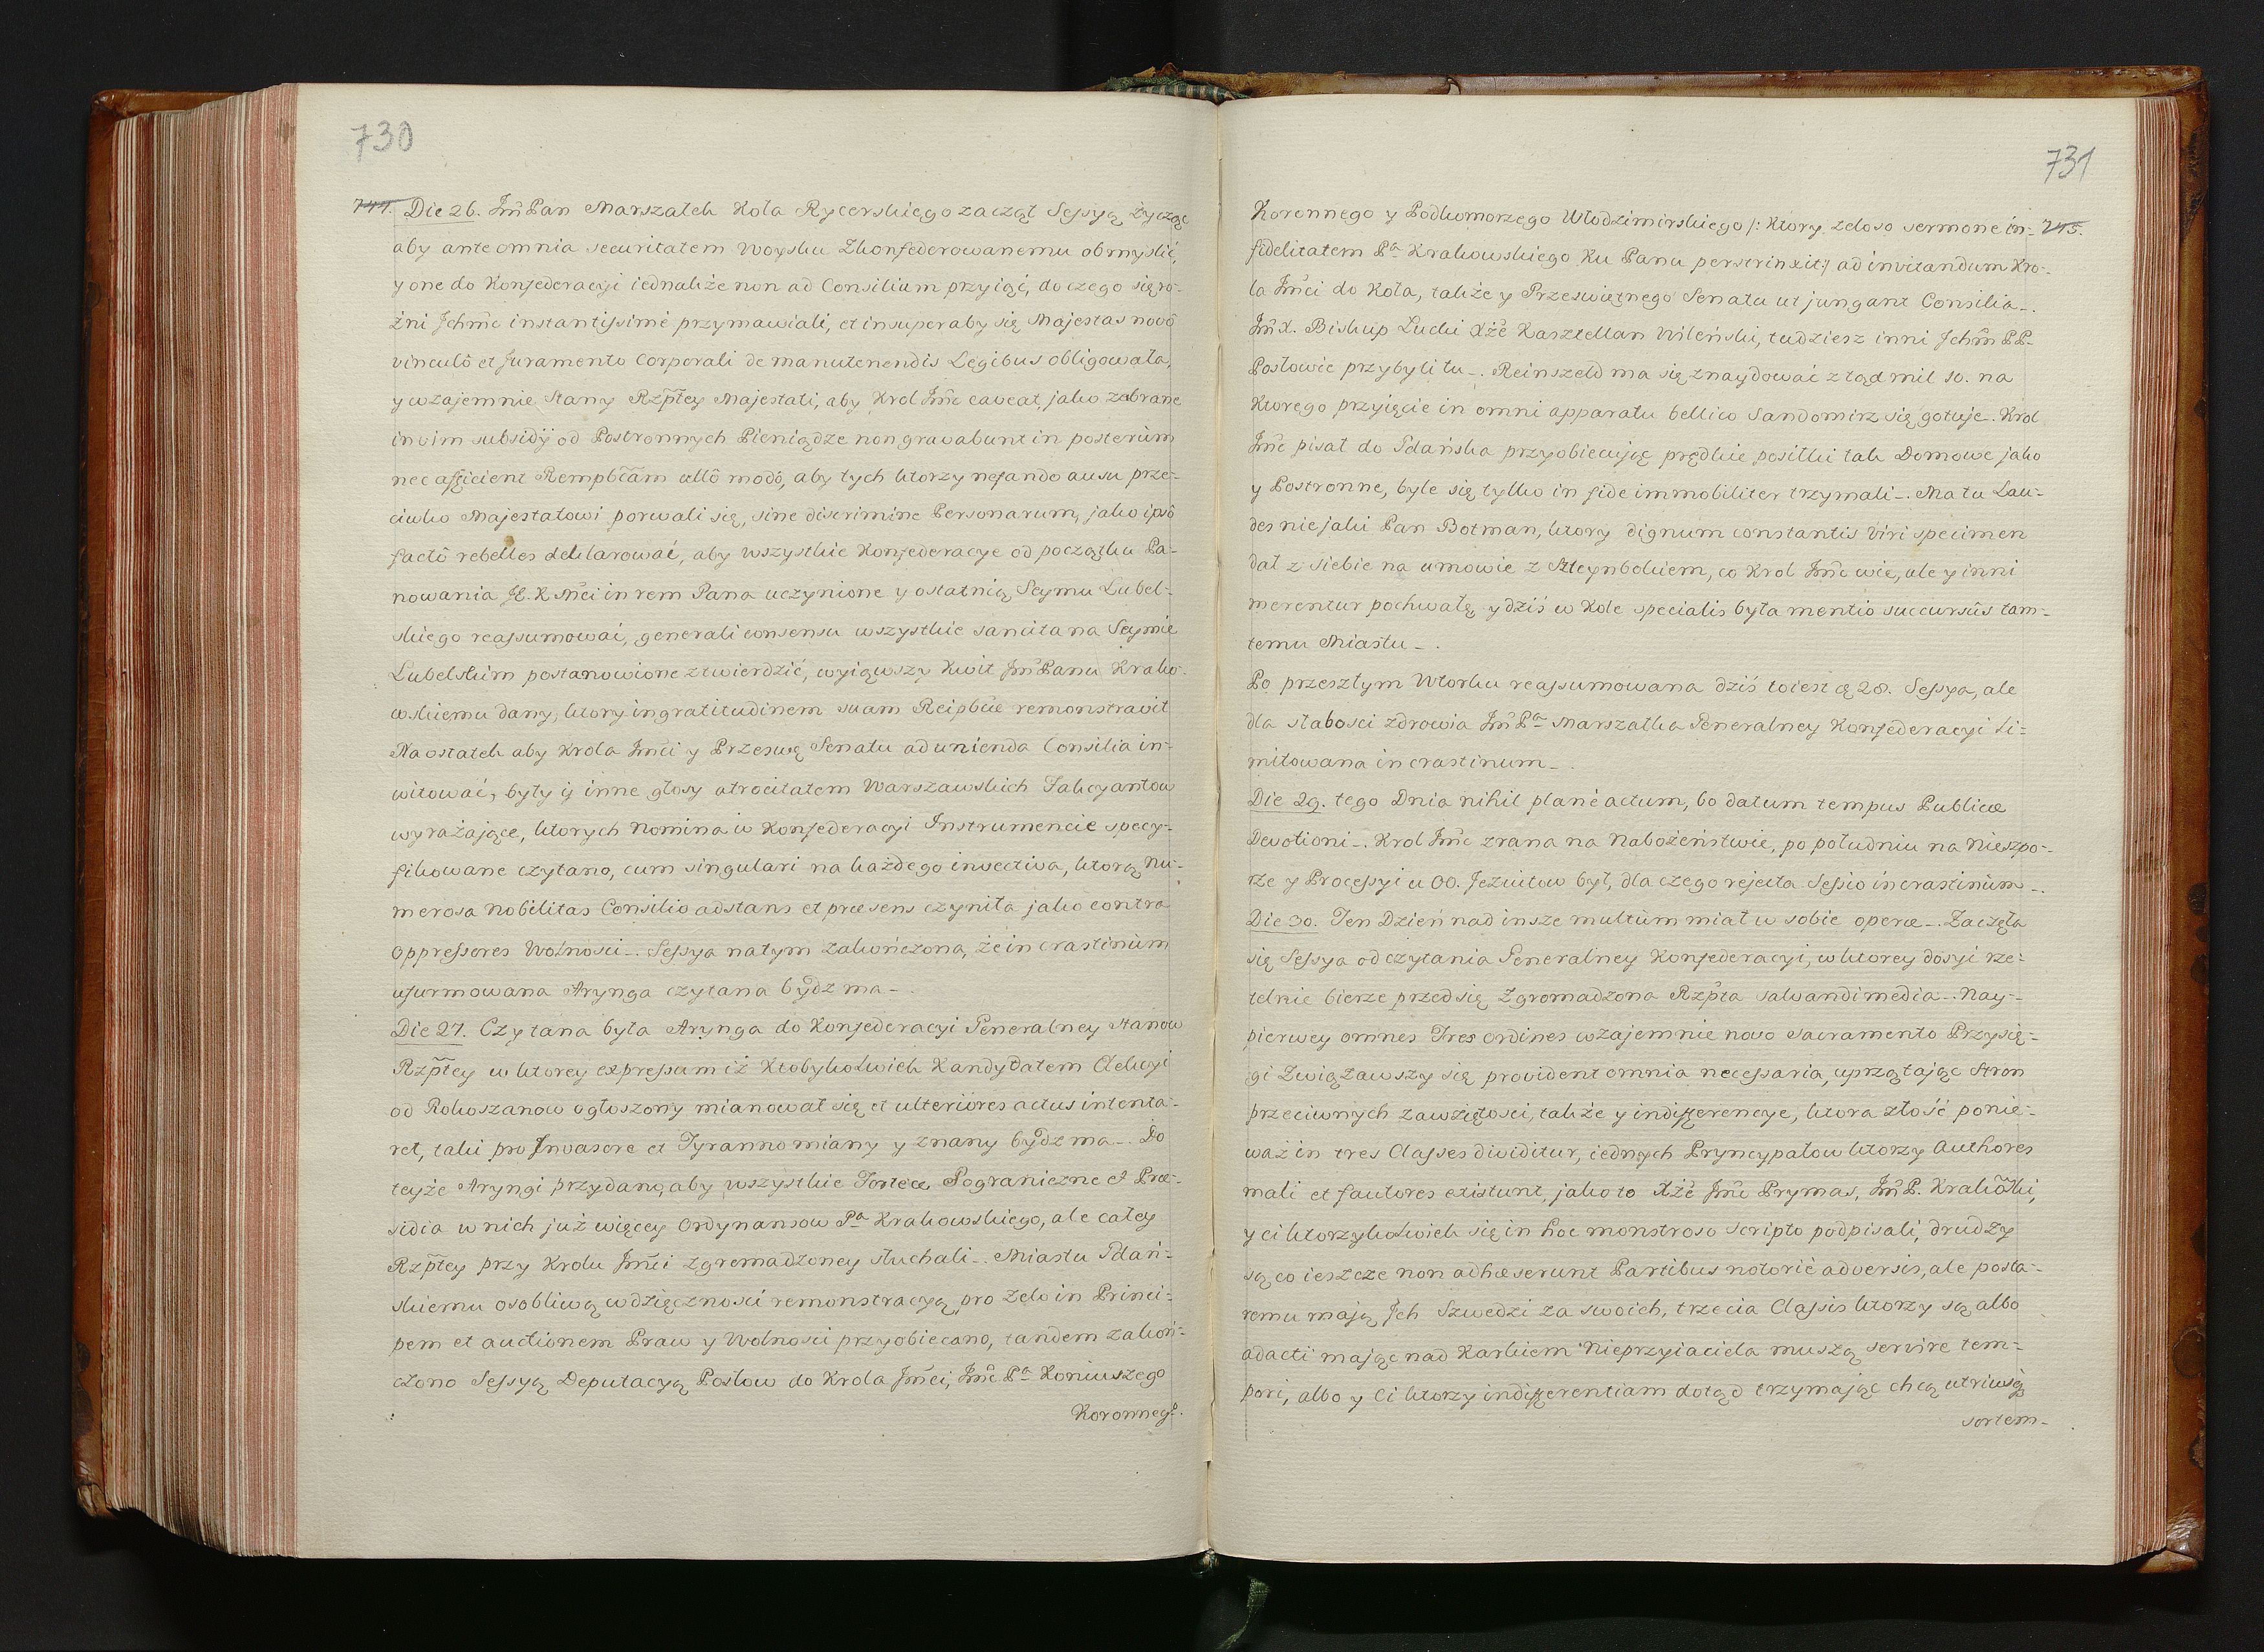 730
744. Die 26. Jm̃ Pan Marszałek Koła Rycerskiego zaczął Sessyą życząc
aby ante omnia securitatem Woysku Zkonfederowanemu obmyslić,
y one do Konfederacyi iednakże non ad Consilium przyiąć, do czego się ro-
żni Jchm̃c instantissimè przymawiali, et insuper aby się Majestas novô
vinculô et Juramento Corporali de manutenendis Legibus obligowała,
y wzajemnie Stany Rzp̃tey Majestati, aby Krol Jm̃c caveat, jako zebrane
in vim subsidÿ od Postronnych Pieniądze non gravabunt in posterùm
nec afficient Rempb̃cam ullô modô, aby tych ktorzy nefando ausu prze-
ciwko Majestatowi porwali się, sine discrimine Personarum, jako ipsô
factô rebelles deklarować, aby wszystkie Konfederacye od początku Pa-
nowania J. K Mći in rem Pana uczynione y ostatnią Seymu Lubel-
skiego reassumować, generali consensu wszystkie sancita na Seymie
Lubelskim postanowione ztwierdzić, wyiąwszy Kwit Jm̃ Panu Krako-
wskiemu dany, ktory ingratitudinem suam Reipb̃æ remonstravit
Na ostatek aby Krola Jm̃ci y Przeswę Senatu ad unienda Consilia in-
witować, były ij inne głosy atrocitatem Warszawskich Fakcyantow
wyrażające, ktorych Nomina w Konfederacyi Instrumencie specy-
fikowane czytano, cum singulari na każdego invectiva, ktorą Nu-
merosa Nobilitas Consilio adstans et præsens czyniła jako contra
oppressores Wolności-. Sessya na tym zakończona, że in crastinùm
uformowana Arynga czytana bydz ma-.
Die 27. Czytana była Arynga do Konfederacyi Generalney Stanow
Rzp̃tey w ktorey expressum iż Ktobykolwiek Kandydatem Elekcyi
od Rokoszanow ogłoszony mianował się et ulteriores actus intenta-
ret, taki pro Invasore et Tyranno miany y znany bydz ma-. Do
teyże Aryngi przydano, aby wszystkie Fortece Pograniczne et Præ-
sidia w nich już więcey Ordynansow Pª Krakowskiego, ale całey
Rzp̃tey przy Krolu Jm̃ci zgromadzoney słuchali-. Miastu Gdań-
skiemu osobliwą wdzięczności remonstracyą pro zelo in Princi-
pem et auctionem Praw y Wolności przyobiecano, tandem zakoń-
czono Sessyą Deputacyą Posłow do Krola Jm̃ci, Jm̃c Pª Koniuszego
Koronnegº.
731
Koronnego y Podkomorzego Włodzimirskiego /: Ktory zeloso sermone in- 745.
fidelitatem Pª Krakowskiego Ku Panu perstrinxit :/ ad invitandum Kro-
la Jm̃ci do Koła, także y Przeswiętnego Senatu ut jungant Consilia-.
Jm̃X. Biskup Łucki Xżẽ Kasztellan Wileński, tudziesz inni Jchm̃ PP.
Posłowie przybyli tu-. Reinszeld ma się znaydować ztąd mil 10. na
Ktorego przyięcie in omni apparatu bellico Sandomirz się gotuje-. Krol
Jm̃c pisał do Gdańska przyobiecując prędkie posiłki tak Domowe jako
y Postronne, byle się tylko in fide immobiliter trzymali-. Ma tu Lau-
des niejaki Pan Botman, ktory dignum constantis Viri specimen
dał z siebie na umowie z Szteynbokiem, co Krol Jm̃c wie, ale y inni
merentur pochwałę y dziś w Kole specialis była mentio succursûs tam-
temu Miastu-.
Po przeszłym Wtorku reassumowana dziś toiest ą 28. Sessya, ale
dla słabosci zdrowia Jm̃ Pª Marszałka Generalney Konfederacyi li-
mitowana in crastinum-.
Die 29. tego Dnia nihil planè actum, bo datum tempus Publicæ
Devotioni-. Krol Jm̃c zrana na Nabożeństwie, po południu na Nieszpo-
rze y Processyi u OO. Jezuitow był, dla czego rejecta Sessio in crastinùm-.
Die 30. Ten Dzień nad insze multùm miał w sobie operæ-. Zaczęła
się Sessya od czytania Generalney Konfederacyi, w ktorey dosyć rze-
telnie bierze przed się Zgromadzona Rzp̃ta salvandi media-. Nay-
pierwey omnes Tres Ordines wzajemnie novo Sacramento Przysię-
gi Związawszy się provident omnia necessaria, uprzątając Stron
przeciwnych zawziętosci, także y indifferencye, ktora złość ponie-
waż in tres Classes dividitur, iednych Pryncypałow ktorzy Authores
mali et fautores existunt, jako to Xżẽ Jm̃c Prymas, Jm̃ P. Krakow̃ski,
y ci ktorzykolwiek się in hoc monstroso scripto podpisali, drudzy
są co ieszcze non adhæserunt Partibus notoriè adversis, ale posta-
remu mają Jch Szwedzi za swoich, trzecia Classis ktorzy są albo
adacti mając nad Karkiem Nieprzyiaciela muszą servire tem-
pori, albo y Ci ktorzy indifferentiam dotąd trzymając chcą utriusq
sortem-